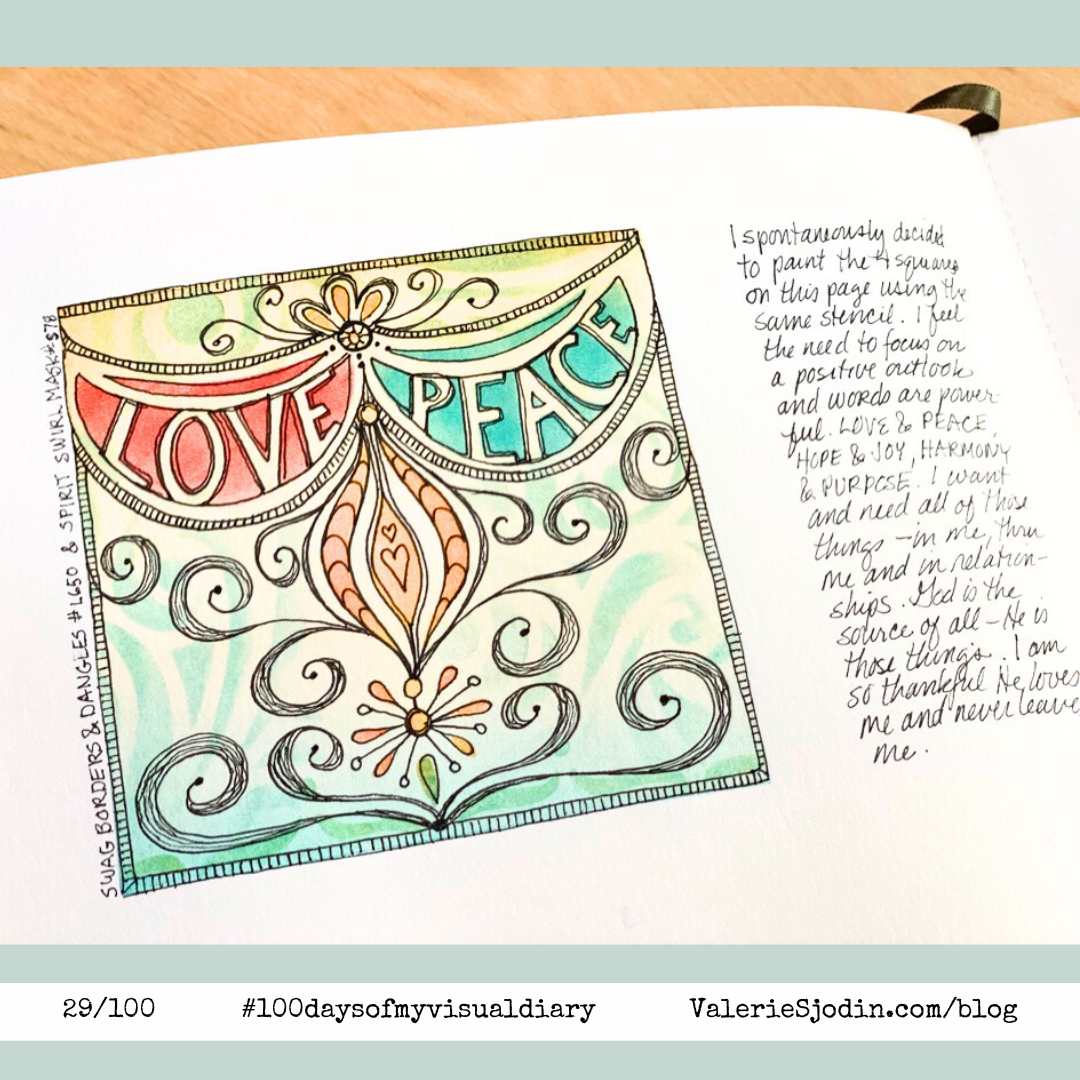 SWAG BORDERS & DANGLES #L650 & SPIRIT SWIRL MASK #S78
LOVE
PEACE
I spontaneously decided
to paint the 4 squares
on this page using the
same stencil. I feel
the need to focus on
a positive outlook
and words are power-
ful. LOVE & PEACE,
HOPE & JOY, HARMONY
& PURPOSE. I want
and need all of those
things - in me, thru
me and in relation-
ships. God is the
source of all - He is
those things. I am
so thankful He loves
me and never leave
me.
29/100
#100daysofmyvisualdiary
ValerieSjodin.com/blog